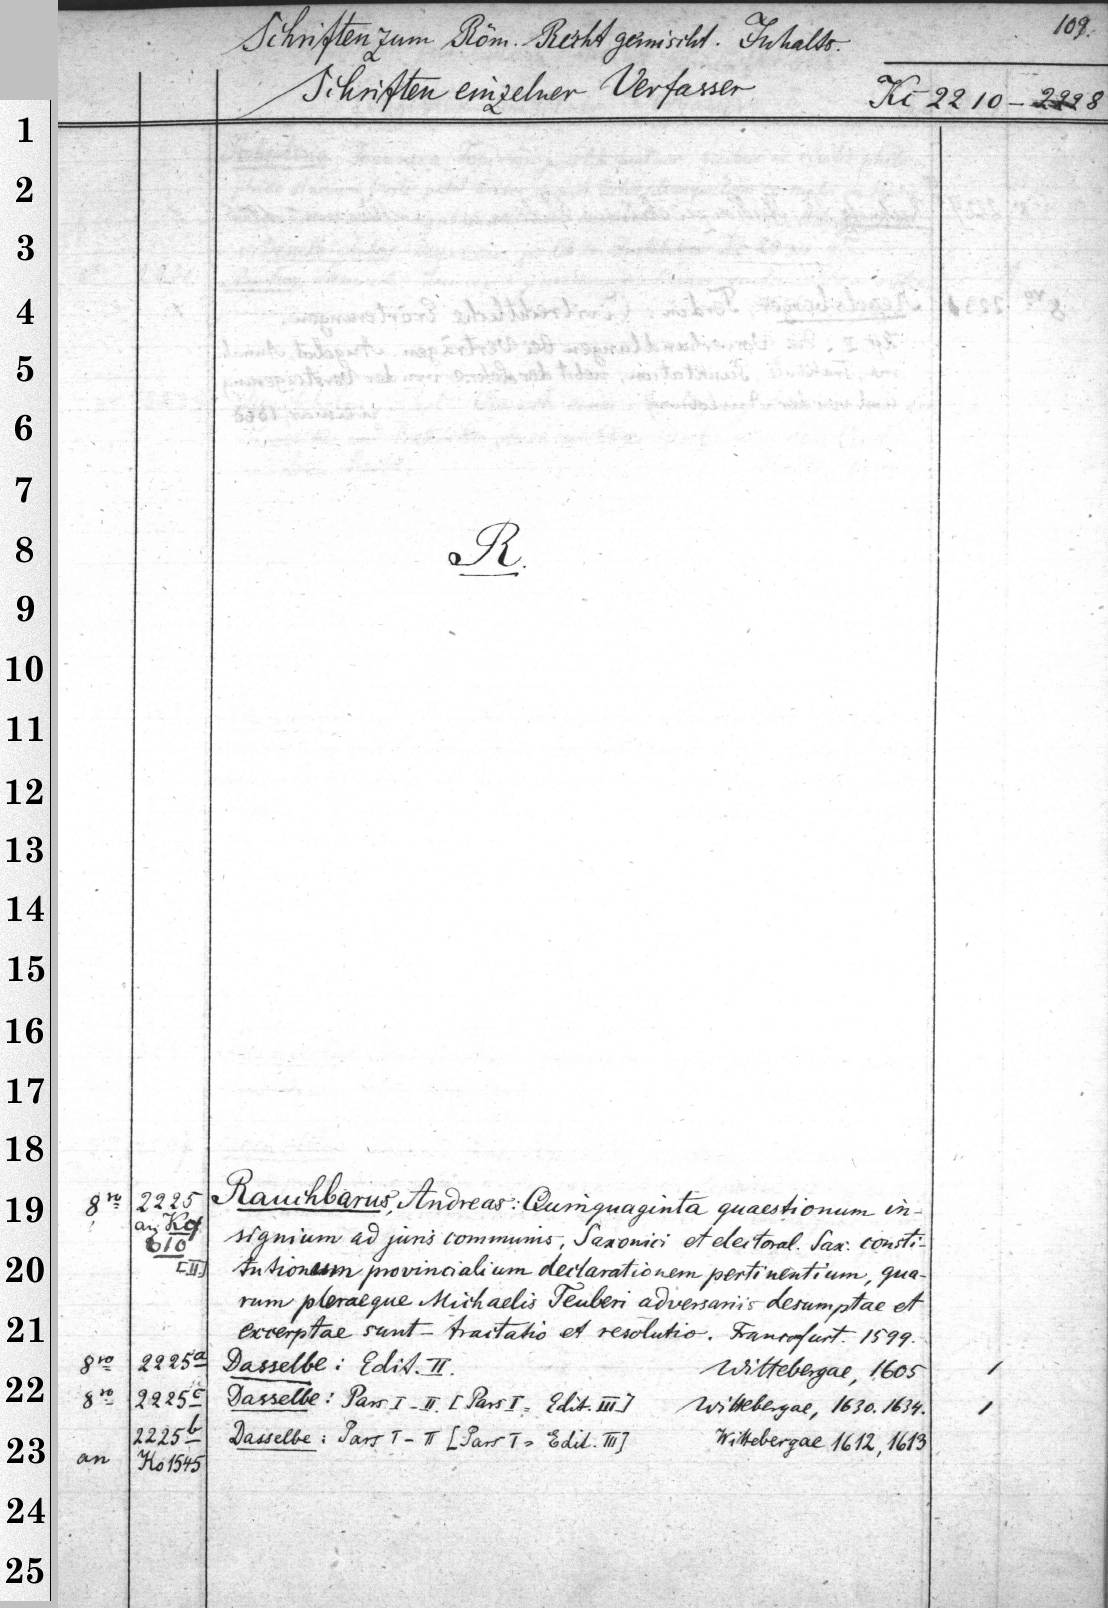 109.
Schriften zum Röm. Recht gemischt. Inhalts.
Schriften einzelner Verfasser
Kc 2210 – 2228
R.
8ro 2225 Rauchbarus, Andreas: Quinquaginta quaestionum in-
an Kg
610 signium ad juris communis, Saxonici et electoral. Sax. consti-
[II] tutionum provincialium declarationem pertinentium, qua-
rum pleraeque Michaelis Teuberi adversariis desumptae et
excerptae sunt – tractatio et resolutio. Francofurt. 1599.
8ro 2225a Dasselbe: Edit. II. Wittebergae, 1605 1
8ro 2225c Dasselbe: Pars I – II. [Pars I = Edit. III] Wittebergae, 1630. 1634. 1
2225b Dasselbe: Pars I – II [Pars I = Edit. III] Wittebergae 1612, 1613
an Ko 1545
1
2
3
4
5
6
7
8
9
10
11
12
13
14
15
16
17
18
19
20
21
22
23
24
25